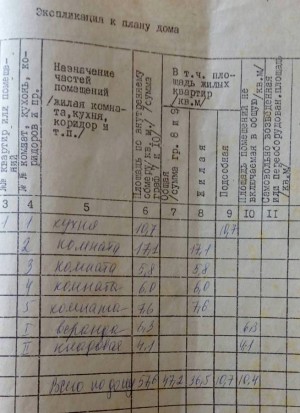 Экспликация к плану дома
№№ квартир или помещений
№№ комнат, кухонь, коридоров и пр.
Назначение
частей
помещений
/жилая комната, кухня,
коридор и
т.п./
Площадь по внутреннему
обмеру/кв.м/
/сумма
В т.ч. площадь жилых
квартир
/кв.м/
Общая
/сумма гр. 8 и 9/
Жилая
Подсобная
Площадь помещений не
включаемая в общую/кв.м/
Самовольно возведенная
или переоборудован.площадь
/кв.м/
3 4 5 6 7 8 9 10 11
1 1 кухня 10,7 10,7
2 комната 17,1 17,1
3 комната 5,8 5,8
4 комната 6,0 6,0
5 комната 7,6 7,6
I веранда 6,3 6,3
II кладовая 4,1 4,1
Всего по дому 57,6 47,2 36,5 10,7 10,4